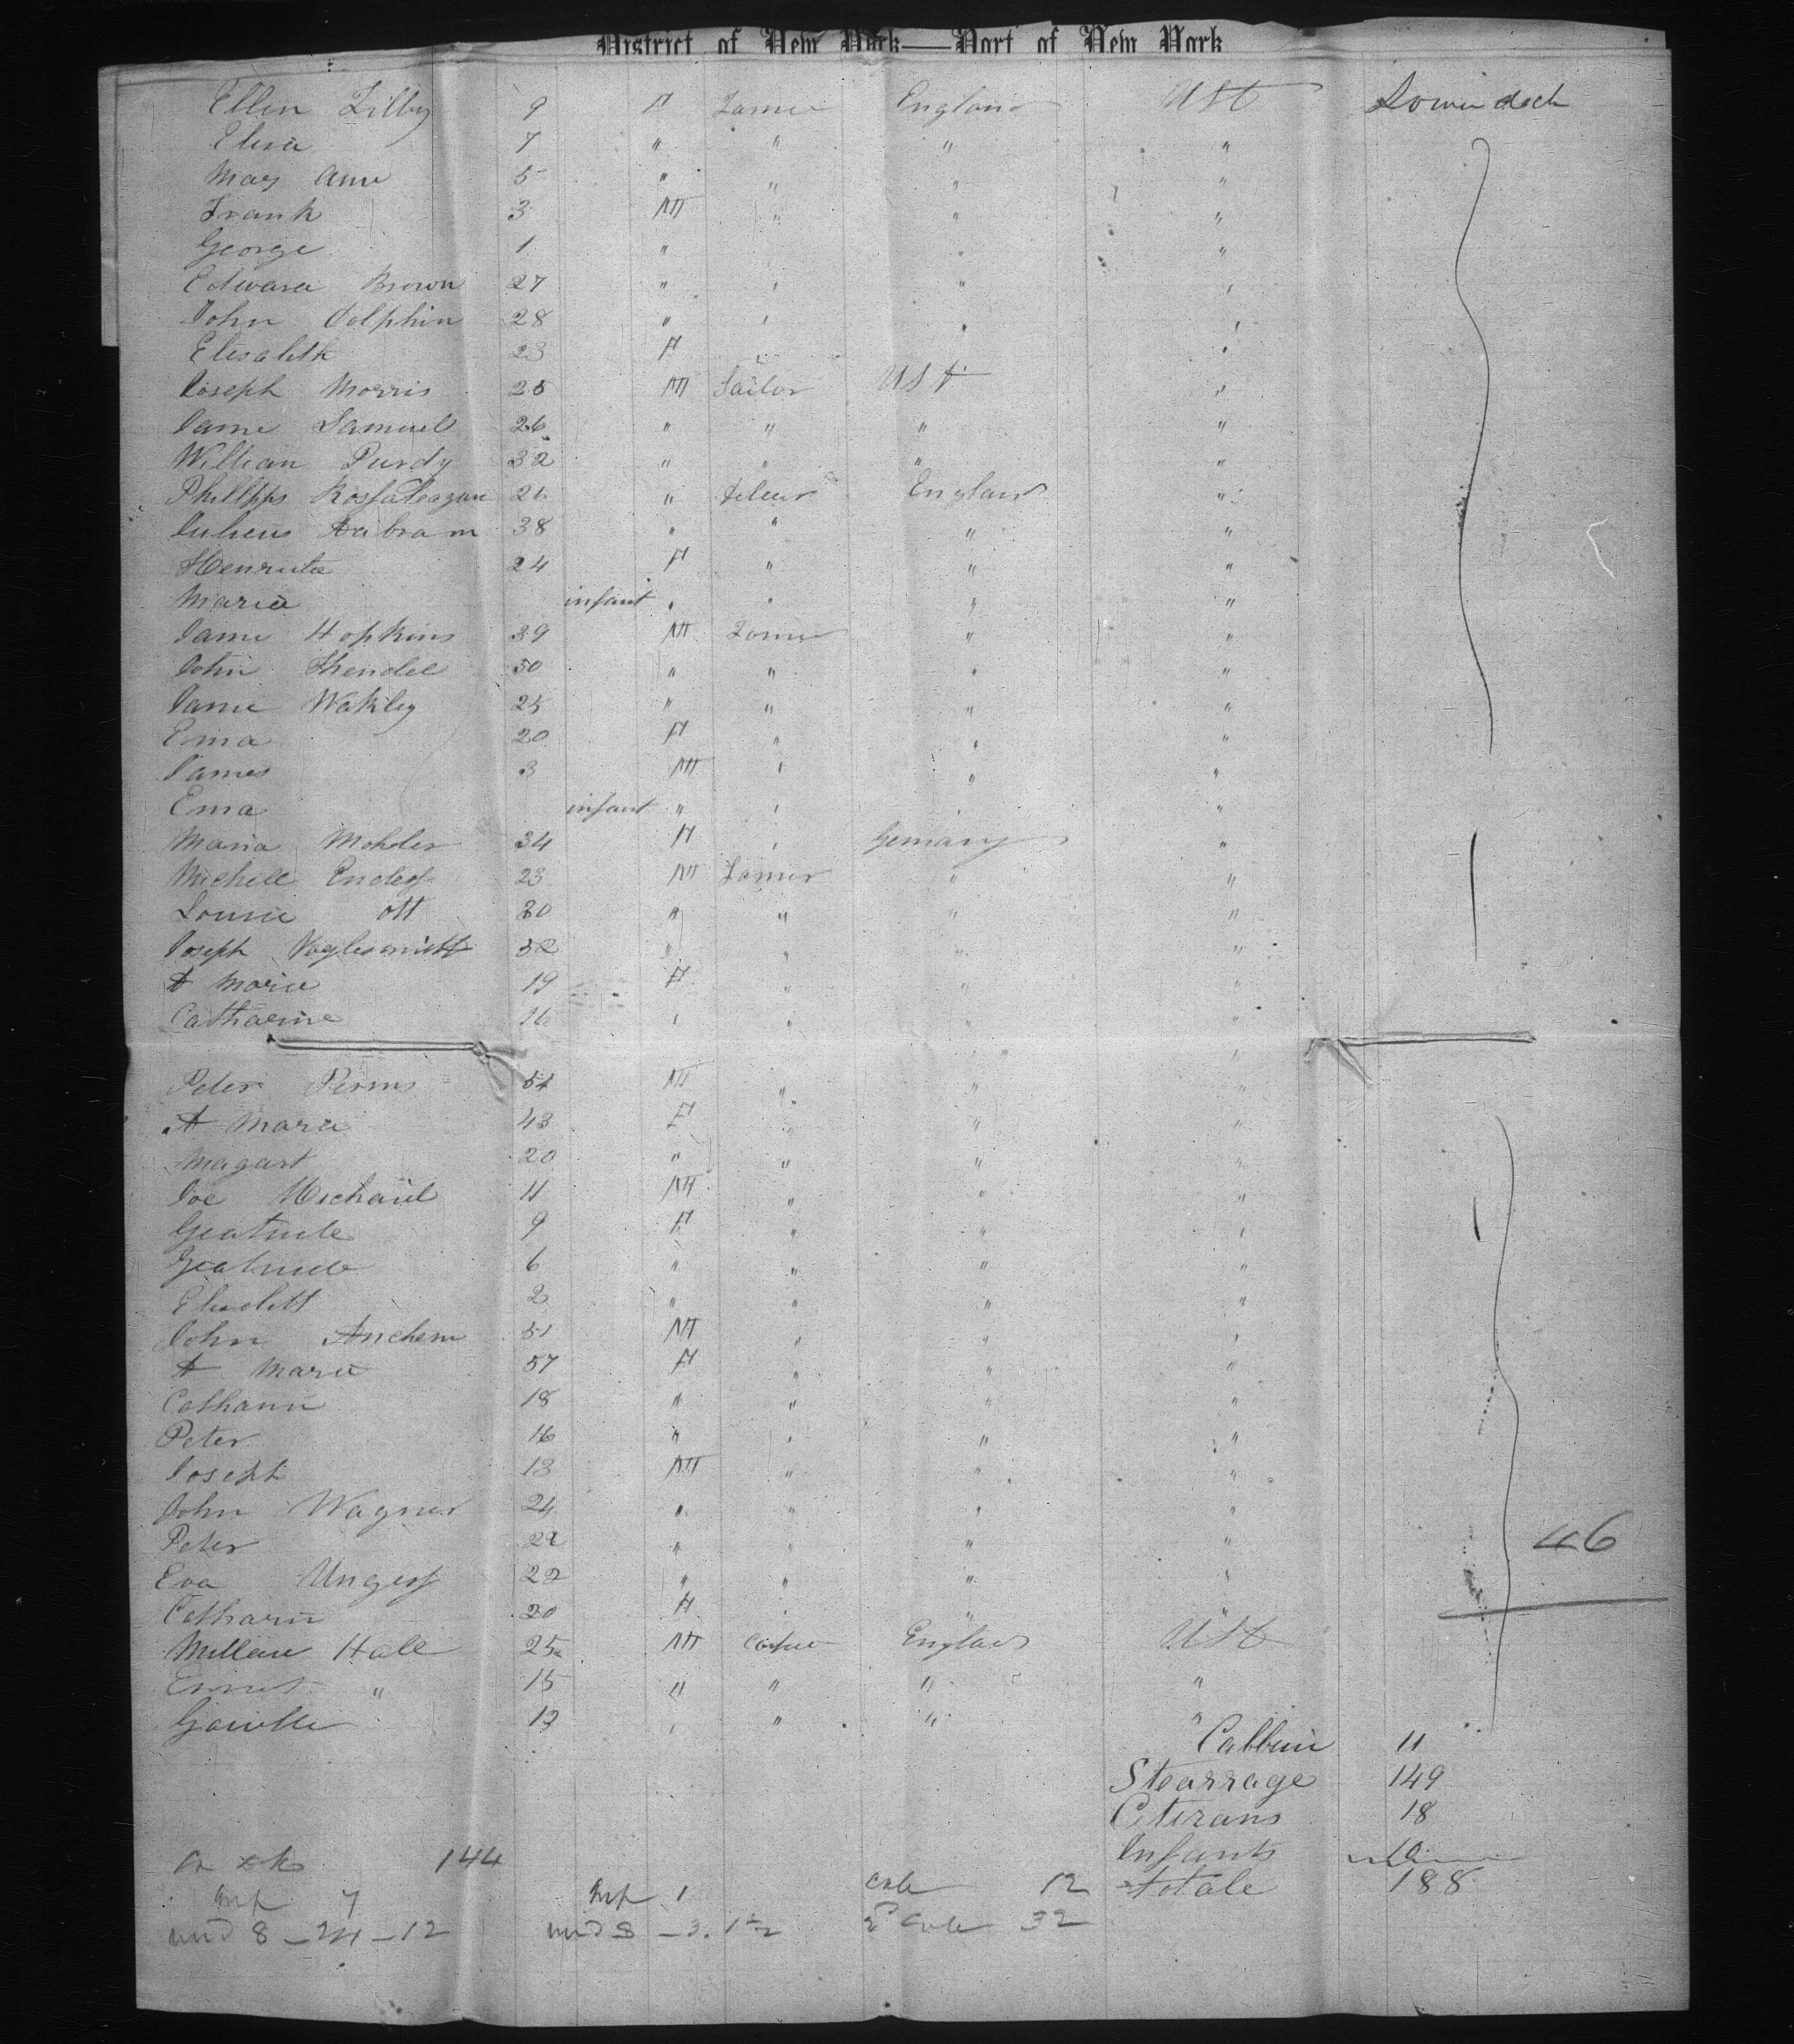 District of New York—Port of New York
Ellen Zilby 9 F Farmer England USA Lower deck
Elisa 7 " " " "
Mary Ann 5 " " " "
Frank 3 M " " "
George 1 " " "
Edward Brown 27 " " " "
John Dolphin 28 " " " "
Elisabeth 23 F " "
Joseph Morris 25 M Sailor USA "
Jame Samuel 26 " " " "
William Purdy 32 " " " "
Phillpps 26 " England "
Julieus Aabram 38 " " " "
Henrieta 24 F " " "
Maria infant " " " "
Jame Hopkins 39 M Farmer " "
John Shendel 50 " " " "
Jame Wakley 25 " " " "
Ema 20 F " " "
James 3 M " " "
Ema infant " " " "
Maria Mohler 34 F " Gemany "
Michell Enders 23 M Farmer " "
Lousie Ott 30 " " " "
Joseph Voglesmitt 52 " " " "
A Maria 19 F " " "
Catharine 16 " " " "
Peter Perms 51 M " " "
A Maria 43 F " " "
Magart 20 " " " "
Joe Michail 11 M " " "
Geatrude 9 F " " "
Geatrude 6 " " " "
Elisabett 2 " " " "
John Anchem 51 M " " "
A Maria 57 F " " "
Catharin 18 " " " "
Peter 16 " " " "
Joseph 13 M " " "
John Wagner 24 " " " "
Peter 22 " " " "
46
Eva Ungers 22 " " " "
Catharin 20 F " " "
Millaw Hall 25 M England USA
Ernest " 15 " " " "
13 " " " "
Cabbin 11
Stearrage 149
Citizans 18
Infants 10
144
Totale 188
Inf 7 Inf 1 12
und 8 - 24 - 12 und 8 - 3. 1½ 32